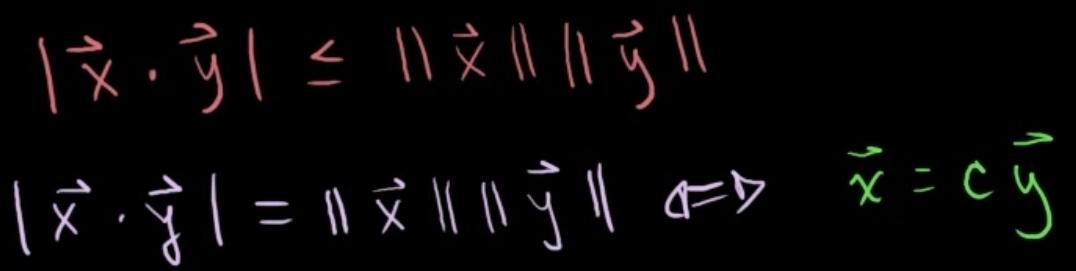 |x⃗ · y⃗| ≤ ||x⃗|| ||y⃗||
|x⃗ · y⃗| = ||x⃗|| ||y⃗|| ⇔ x⃗ = c y⃗